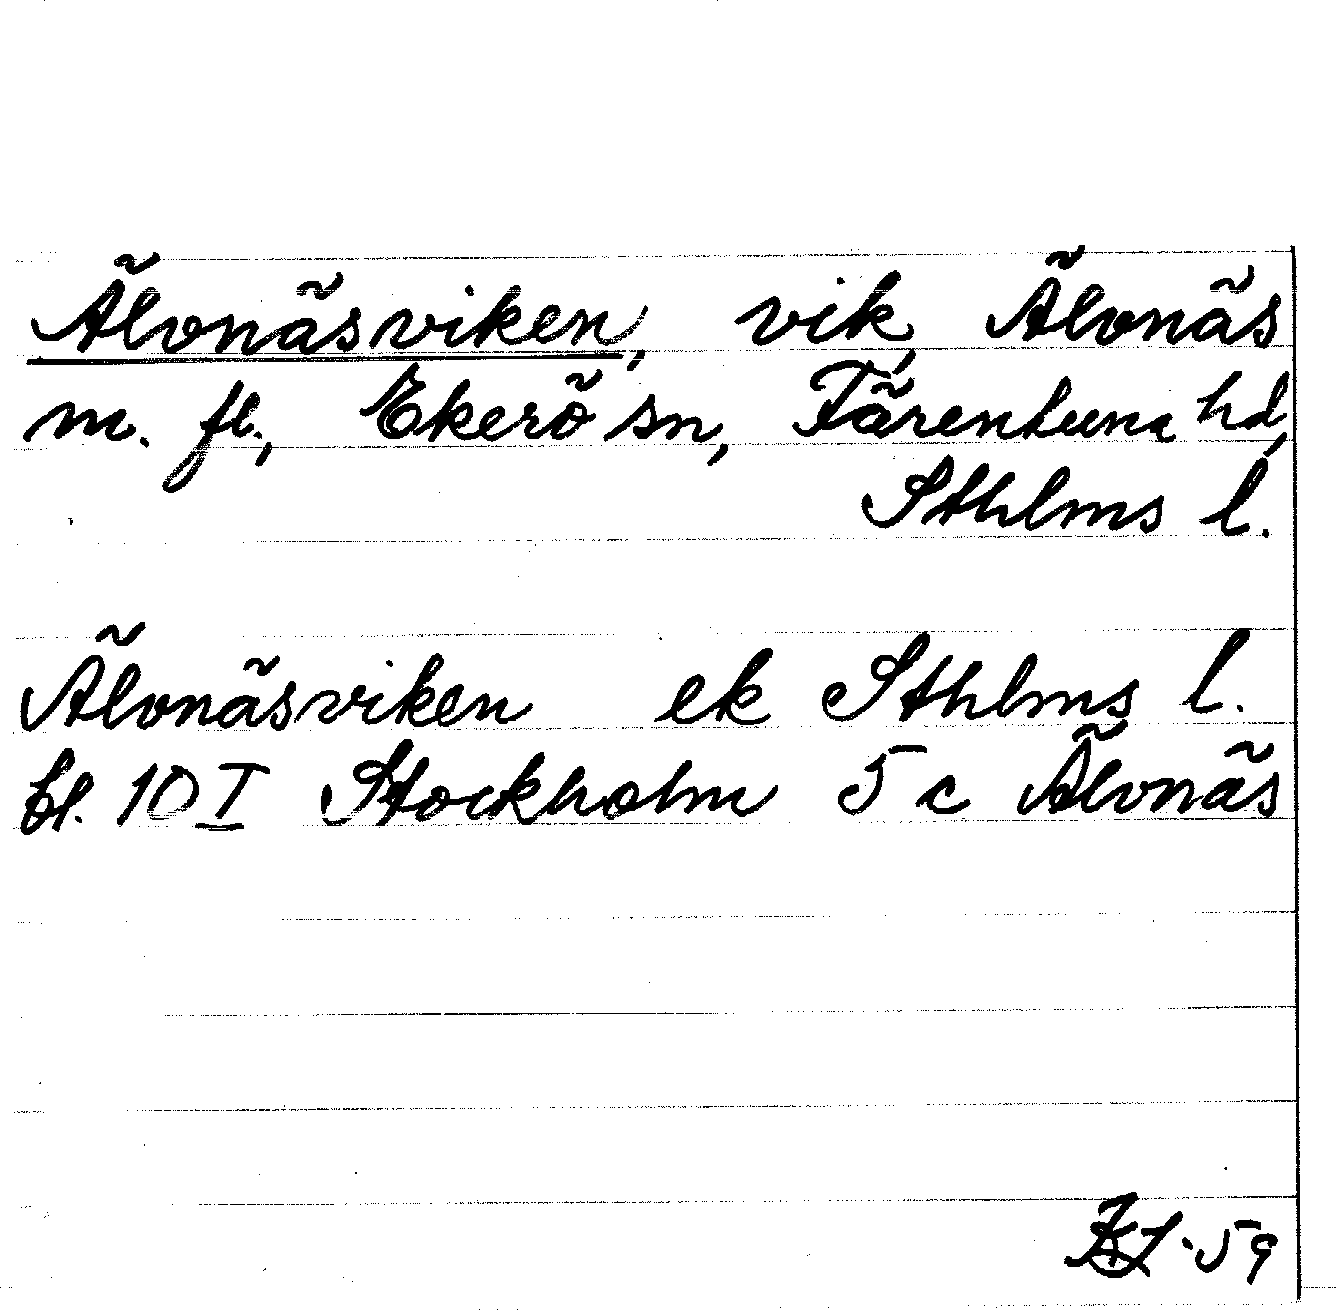 Älvnäsviken, vik, Älvnäs
m. fl., Ekerö sn, Färentuna hd,
Sthlms l.
Älvnäsviken ek Sthlms l.
bl. 10 I Stockholm 5 c Älvnäs
59